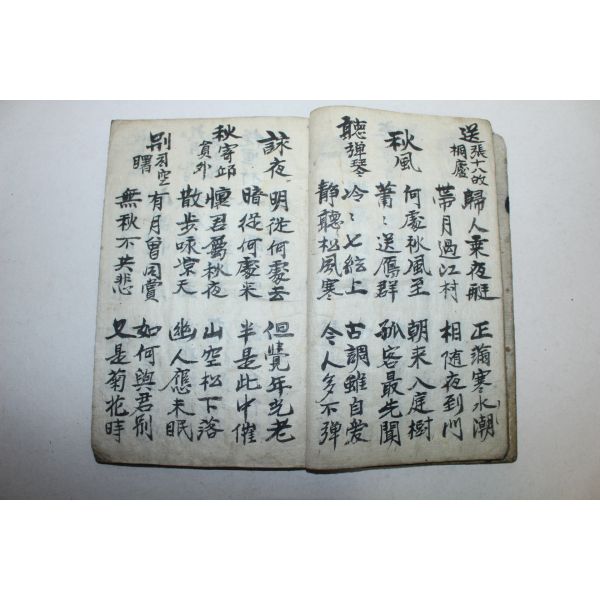 送張十八
桐廬
歸人乗夜艇 正滿寒水潮
帶月過江村 相随夜到門
秋風
何處秋風至 朝来入庭樹
蕭〻送鴈群 孤客最先聞
聽彈琴
冷〻七絃上 古調雖自愛
靜聽松風寒 令人多不彈
詠夜
明從何處去 但覺年光老
暗從何處来 半是此中催
秋寄邱
員外
懷君屬秋夜 山空松下落
散步咏凉天 幽人應未眠
別司空
曙
有月曾同賞 如何與君別
無秋不共悲 又是菊花時